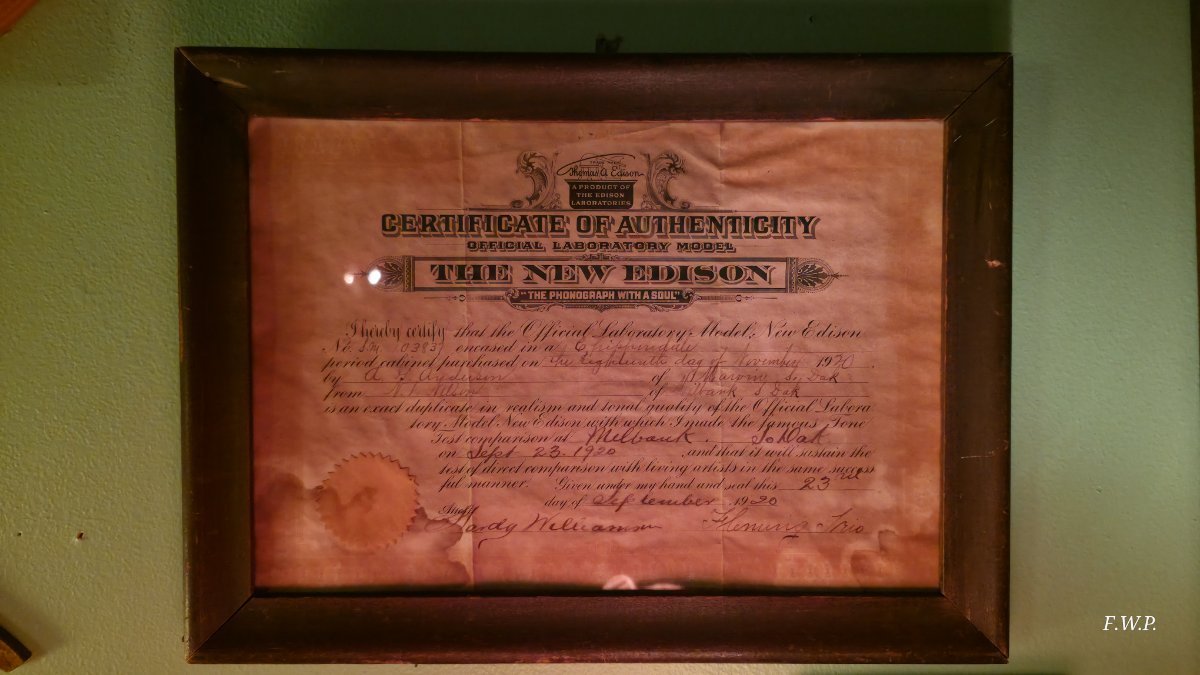 TRADE MARK
Thomas A Edison
A PRODUCT OF
THE EDISON
LABORATORIES
CERTIFICATE OF AUTHENTICITY
OFFICIAL LABORATORY MODEL
THE NEW EDISON
"THE PHONOGRAPH WITH A SOUL"
I hereby certify that the Official Laboratory Model, New Edison
No. encased in a Chippendale
period cabinet purchased on the Eighteenth day of November 1920.
by A. Anderson of Marvin, S. Dak
from Nelson of Milbank S. Dak
is an exact duplicate in realism and tonal quality of the Official Labora
tory Model New Edison with which I made the famous Tone
Test comparison at Milbank. So Dak
on Sept 23. 1920 , and that it will sustain the
test of direct comparison with living artists in the same success
ful manner. Given under my hand and seal this 23rd
day of September 1920
Hardy Williamson Fleming Trio
F.W.P.